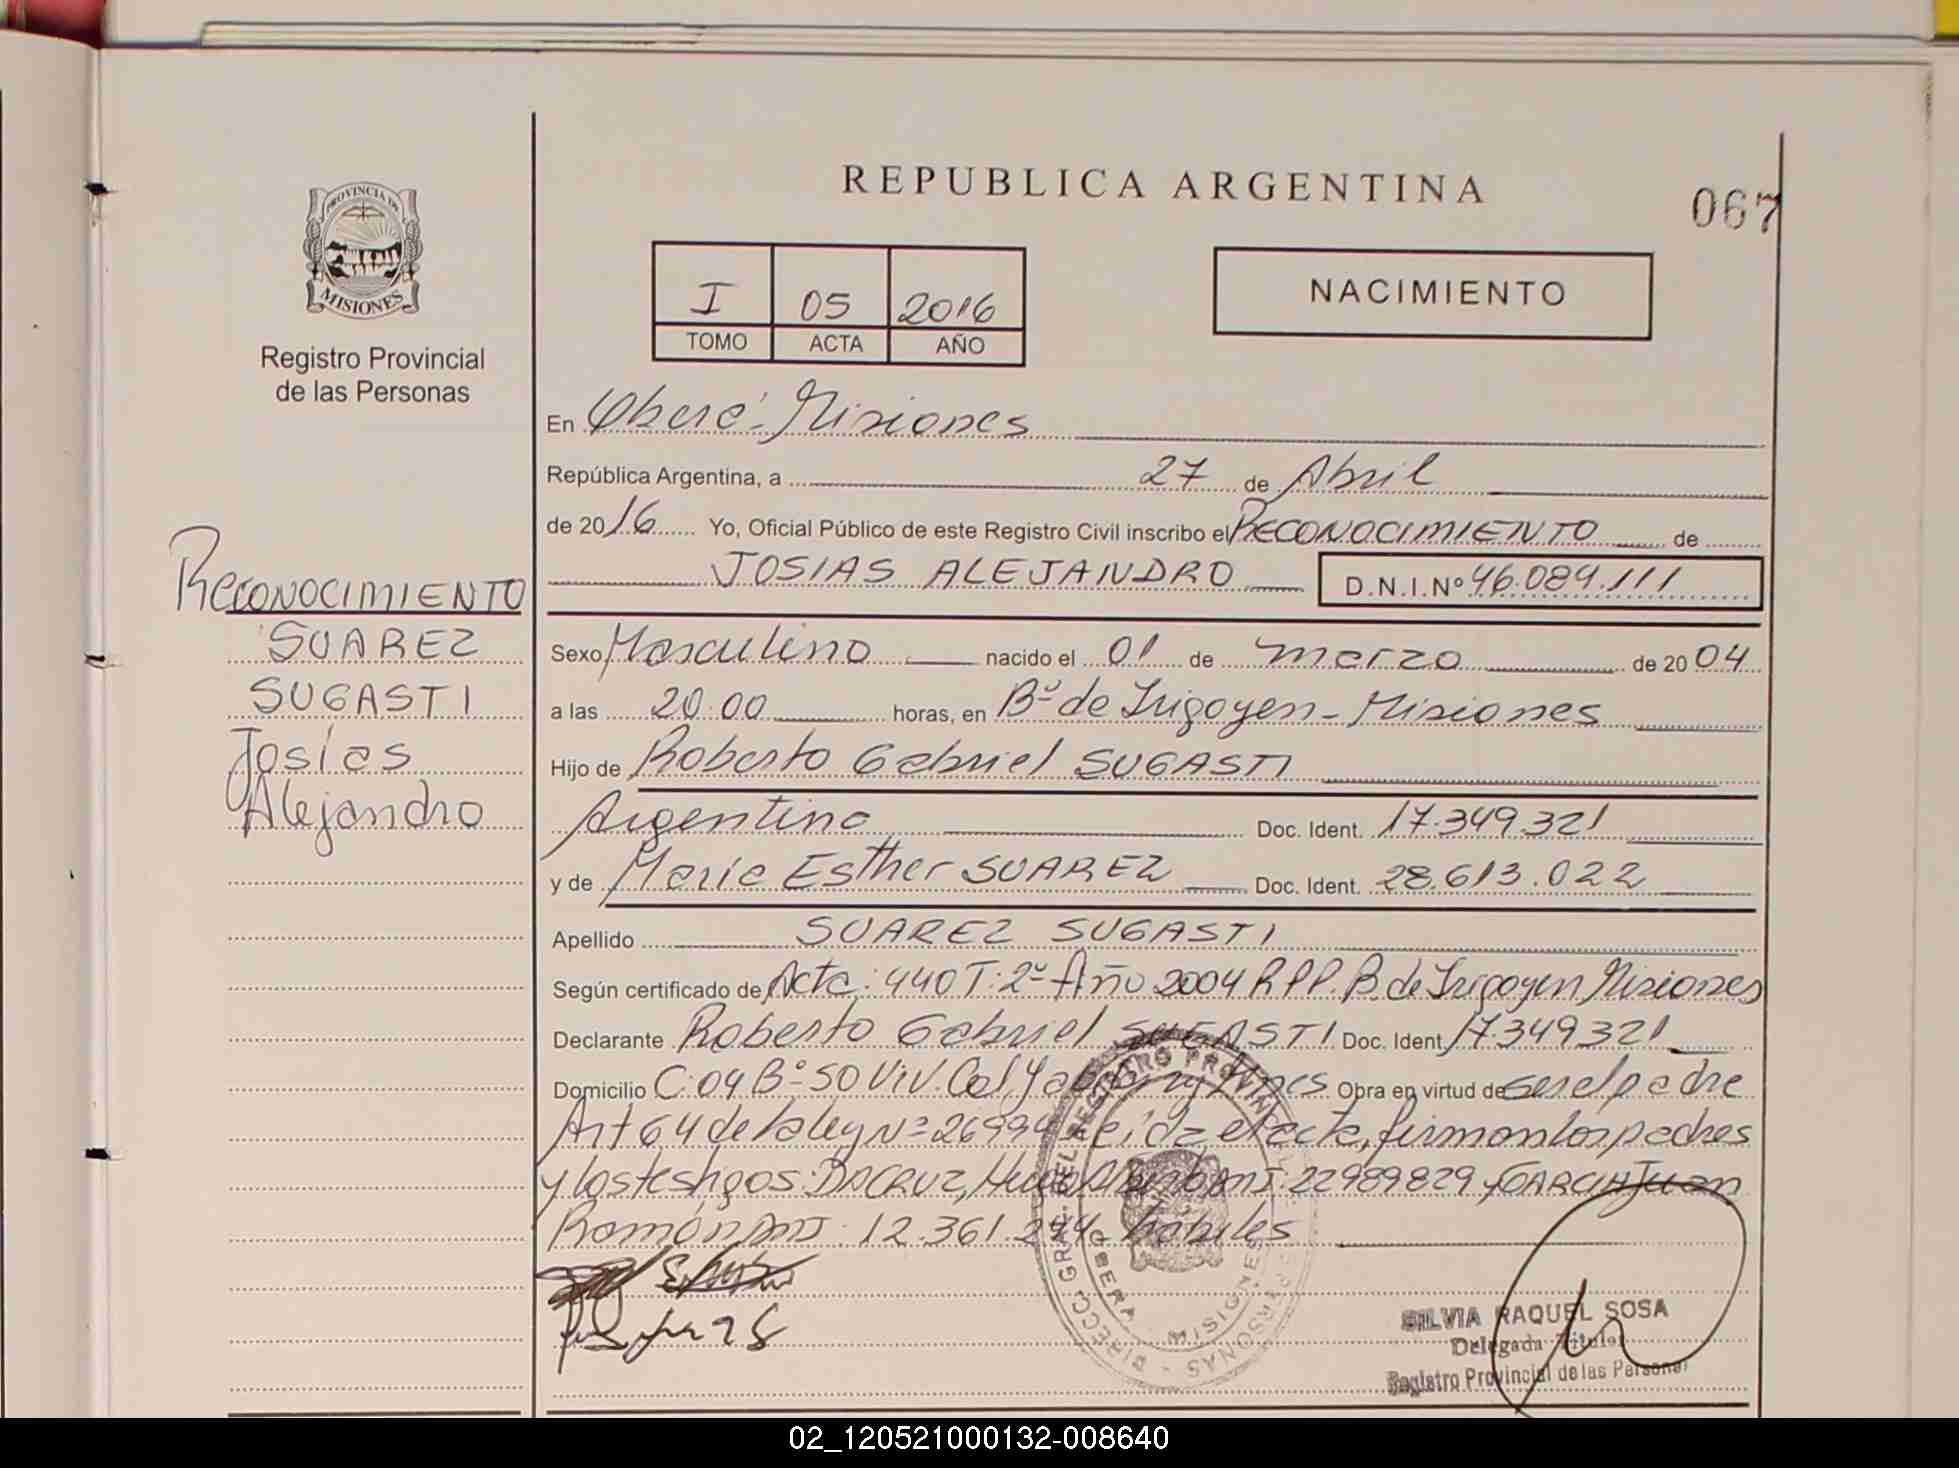 REPUBLICA ARGENTINA
067
PROVINCIA DE
MISIONES
Registro Provincial
de las Personas
I 05 2016
TOMO ACTA AÑO
NACIMIENTO
En Oberá - Misiones
República Argentina, a 27 de Abril
de 2016 Yo, Oficial Público de este Registro Civil inscribo el RECONOCIMIENTO de
JOSIAS ALEJANDRO D.N.I.Nº 46.084.111
RECONOCIMIENTO
SUAREZ
SUGASTI
Josías
Alejandro
Sexo Masculino nacido el 01 de marzo de 2004
a las 20:00 horas, en Bº de Irigoyen - Misiones
Hijo de Roberto Gabriel SUGASTI
Argentino Doc. Ident. 17.349.321
y de María Esther SUAREZ Doc. Ident. 28.613.022
Apellido SUAREZ SUGASTI
Según certificado de Acta: 440 T: 2º Año 2004 RPP. B. de Irigoyen Misiones
Declarante Roberto Gabriel SUGASTI Doc. Ident. 17.349321
Domicilio C: 04 Bº 50 Viv. Col. Mnes Obra en virtud de ser el padre
Art 64 de la ley Nº 26994 Leída el acta, firman los padres
y los testigos: DACRUZ, Hugo DNI: 22989829 y GARCIA Juan
Ramón DNI: 12.361.244 habiles
DIRECC. GRAL. DEL REGISTRO PROVINCIAL DE LAS PERSONAS
OBERA MISIONES
SILVIA RAQUEL SOSA
Delegada Titular
Registro Provincial de las Personas
02_120521000132-008640